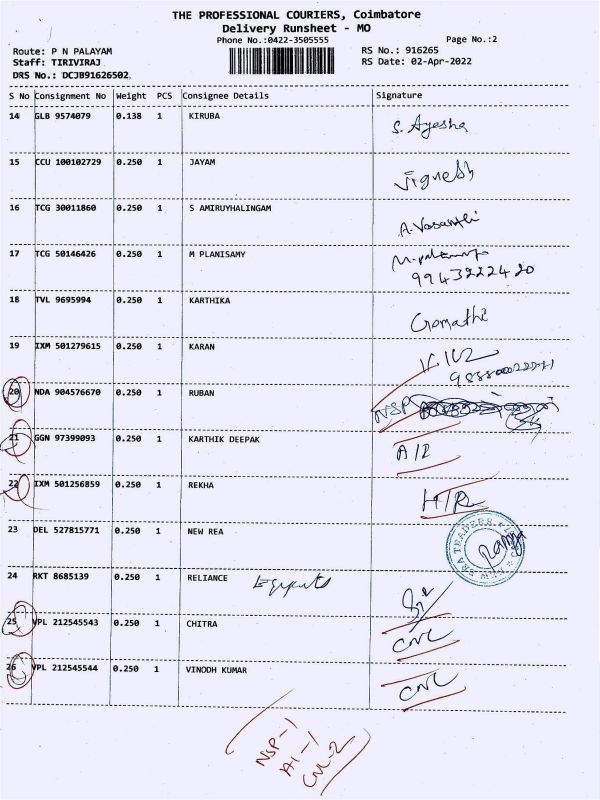 THE PROFESSIONAL COURIERS, Coimbatore
Delivery Runsheet - MO
Phone No.:0422-3505555
Page No.:2
Route: P N PALAYAM
RS No.: 916265
Staff: TIRIVIRAJ
RS Date: 02-Apr-2022
DRS No.: DCJB91626502
S No Consignment No Weight PCS Consignee Details Signature
14 GLB 9574079 0.138 1 KIRUBA S. Ayesha
15 CCU 100102729 0.250 1 JAYAM Vignesh
16 TCG 30011860 0.250 1 S AMIRUYHALINGAM A. Vasanthi
17 TCG 50146426 0.250 1 M PLANISAMY
9943222420
18 TVL 9695994 0.250 1 KARTHIKA Gomathi
19 IXM 501279615 0.250 1 KARAN
20 NDA 904576670 0.250 1 RUBAN NSP
21 GGN 97399093 0.250 1 KARTHIK DEEPAK
22 IXM 501256859 0.250 1 REKHA
23 DEL 527815771 0.250 1 NEW REA TRADERS Ramya
24 RKT 8685139 0.250 1 RELIANCE
25 VPL 212545543 0.250 1 CHITRA CNL
26 VPL 212545544 0.250 1 VINODH KUMAR CNL
NSP-1
AI-1
CNL-2